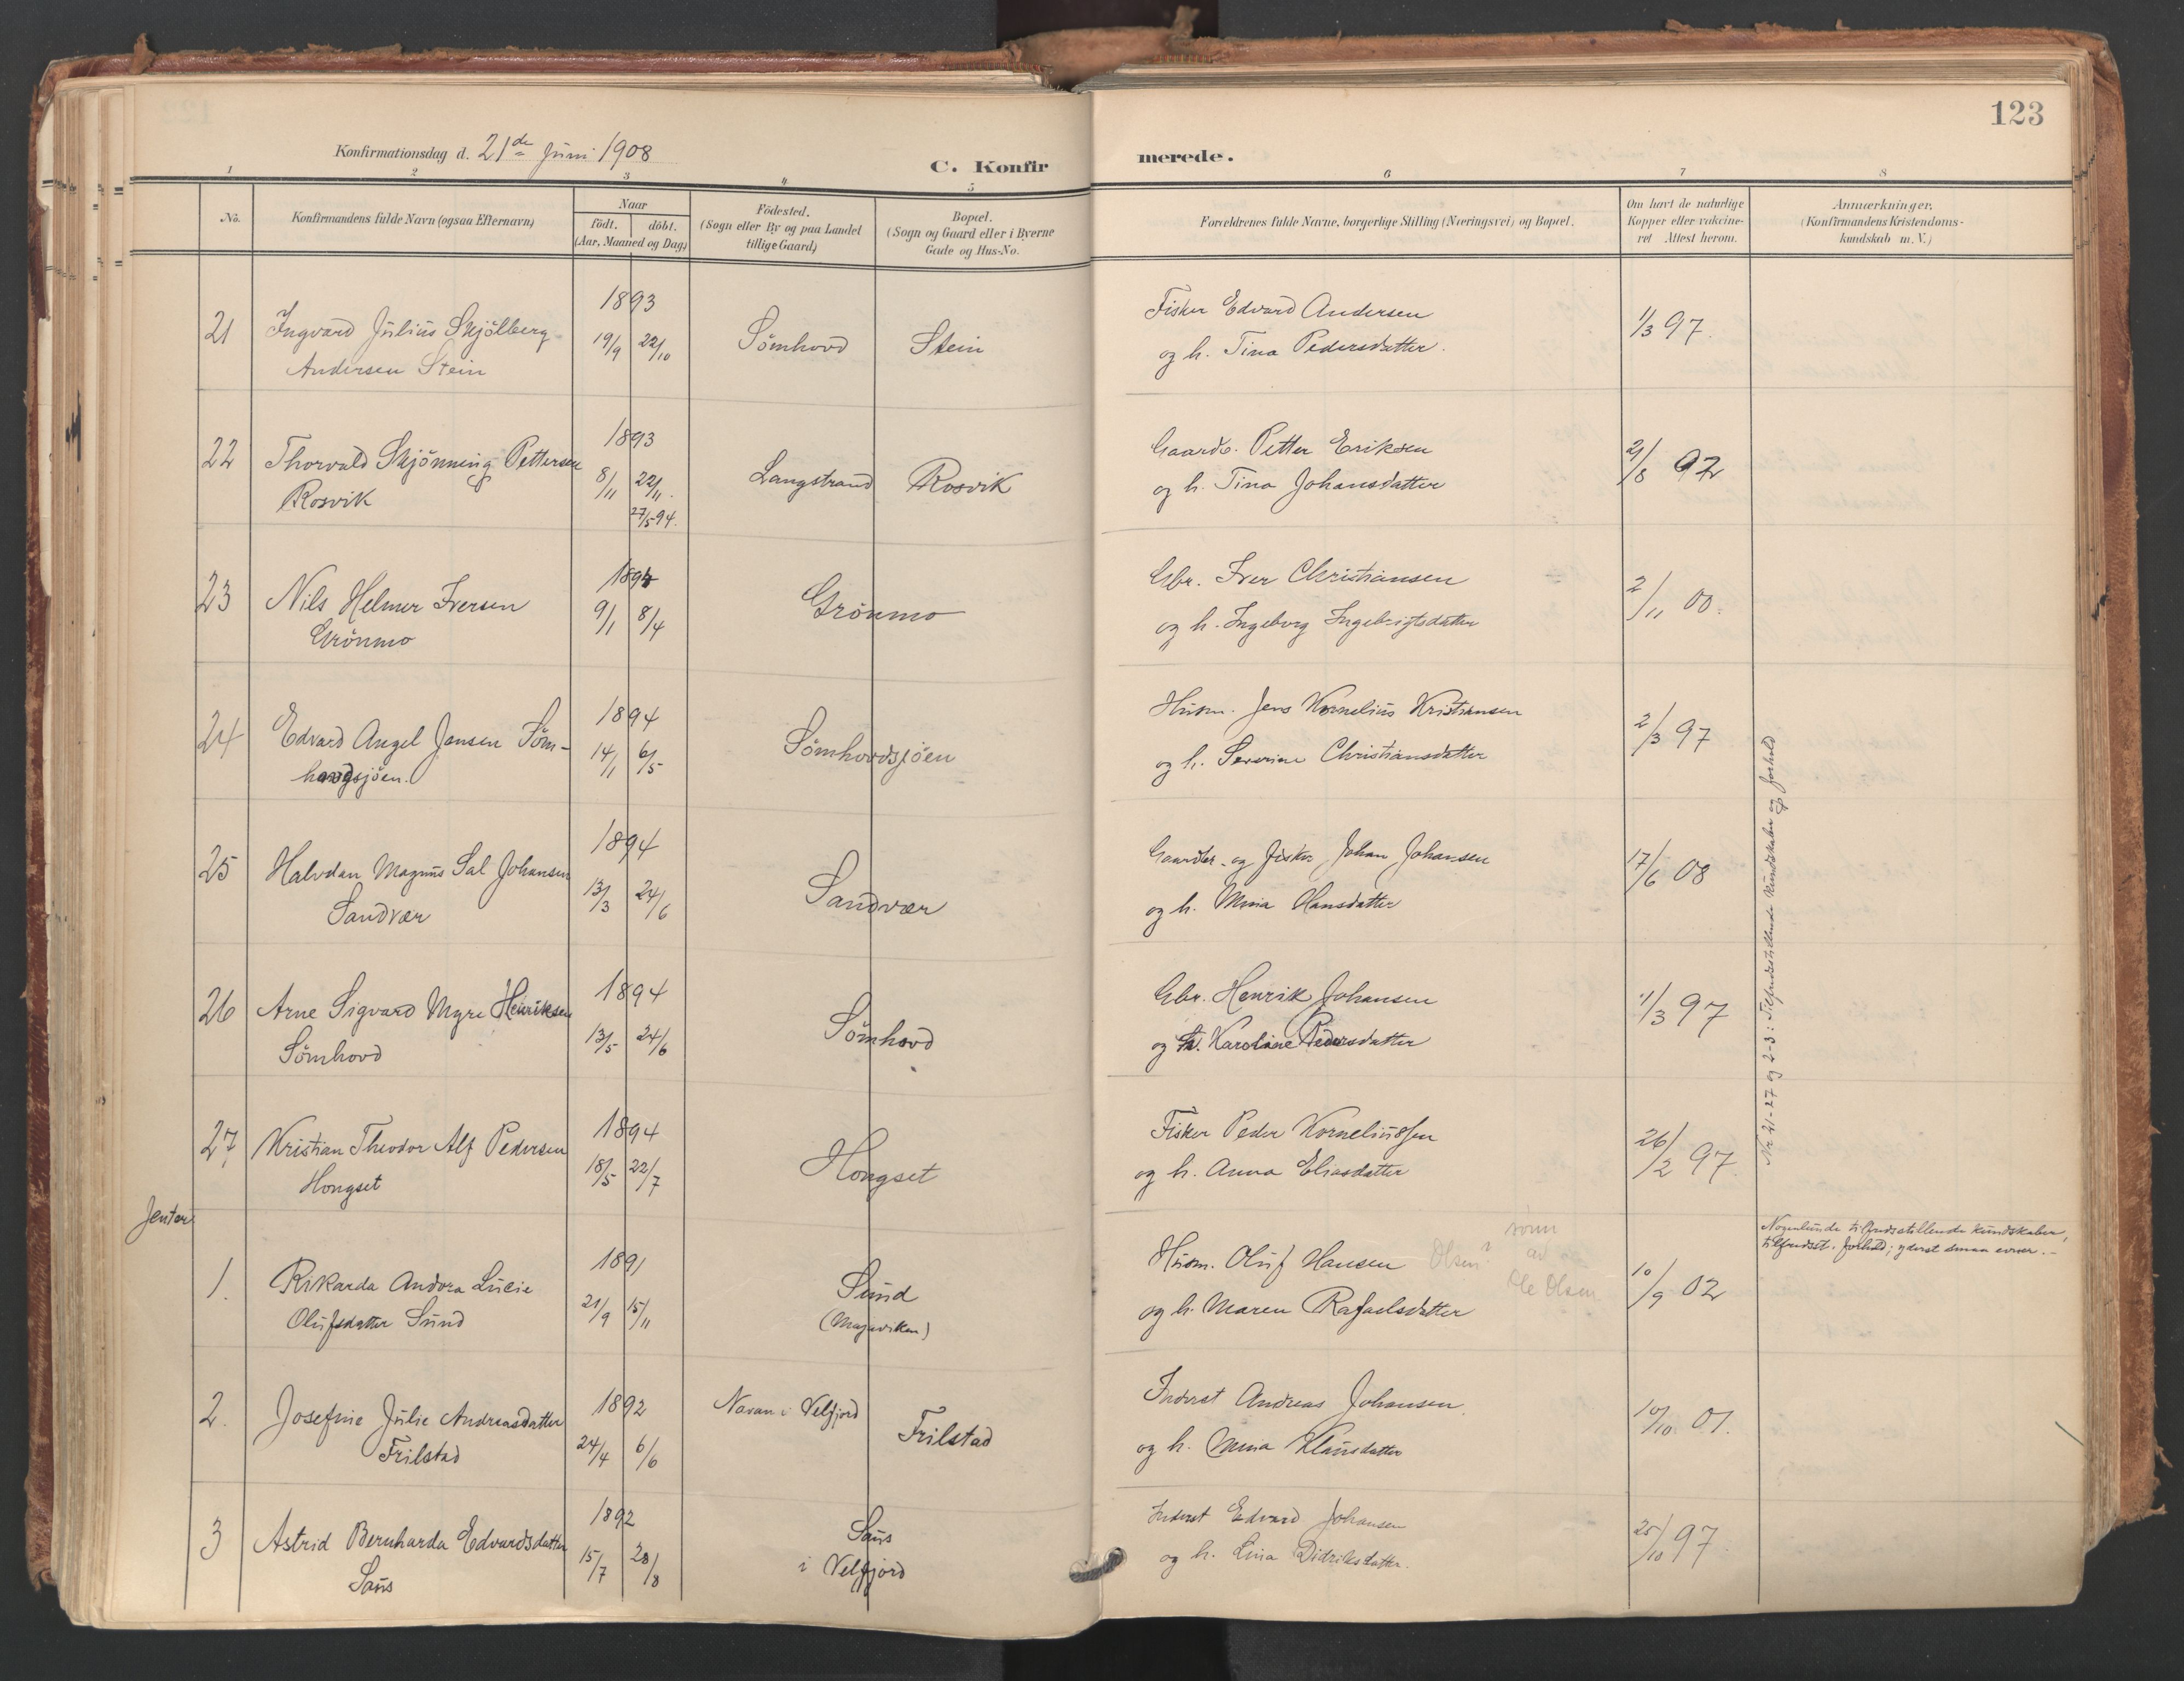 123
Konfirmationsdag d. 21de Juni 1908
C. Konfirmerede.
1 2 3 4 5 6 7 8
No.
Konfirmandens fulde Navn (ogsaa Efternavn)
Naar
födt. döbt.
(Aar, Maaned og Dag)
Födested.
(Sogn eller By og paa Landet
tillige Gaard)
Bopæl.
(Sogn og Gaard eller i Byerne
Gade og Hus-No.
Forældrenes fulde Navne, borgerlige Stilling (Næringsvei) og Bopæl.
Om havt de naturlige
Kopper eller vakcine-
ret Attest herom.
Anmærkninger,
(Konfirmandens Kristendoms-
kundskab m. V.)
21 Ingvard Julius Skjölberg
Andersen Stein
1893
19/9 22/10
Sömhovd
Stein
Fisker Edvard Andersen
og h. Tina Pedersdatter.
1/3 97.
22 Thorvald Skjönning Pettersen
Rosvik
1893
8/11 22/11.
27/5 94.
Langstrand
Rosvik
Gaardb. Petter Eriksen
og h. Tina Johansdatter
2/8 02
23 Nils Helmer Iversen
Grönmo
1894
9/1 8/4
Grönmo
Gbr. Iver Christiansen
og h. Ingeborg Ingebrigtsdatter
2/11 00.
24 Edvard Angel Jensen Söm-
hovdsjöen.
1894
14/1 6/5
Sömhovdsjöen
Husm. Jens Kornelius Kristiansen
og h. Severine Christiansdatter
2/3 97
25 Halvdan Magnus Sal Johansen
Sandvær
1894
13/3 24/6
Sandvær
Gaardbr. og fisker Johan Johansen
og h. Mina Hansdatter
17/6 08
26 Arne Sigvard Myre Henriksen
Sömhovd
1894
13/5 24/6
Sömhovd
Gbr. Henrik Johansen
og h. Karoline Pedersdatter
1/3 97
27 Kristian Theodor Alf Pedersen
Hongset
1894
18/5 22/7
Hongset
Fisker Peder Korneliussen
og h. Anna Eliasdatter
26/2 97.
Nr. 21-27 og 2-3: Tilfredsstillende kundskaber og forhold
Jenter
1. Rikarda Andora Lucie
Olufsdatter Sund
1891
21/9 15/11
Sund
(Majaviken)
Husm. Oluf Hansen Olsen?
sönn
av
Ole Olsen
og h. Maren Rafaelsdatter
10/9 02
Nogenlunde tilfredsstillende kundskaber,
tilfredsst. forhold; yderst smaa evner. -
2. Josefine Julie Andreasdatter
Frilstad
1892
24/4 6/6
Navan i Velfjord
Frilstad
Inderst Andreas Johansen
og h. Mina Klausdatter
10/10 01.
3 Astrid Bernharda Edvardsdatter
Saus
1892
15/7 28/8
Saus
i Velfjord
Inderst Edvard Johansen
og h. Lina Didriksdatter.
25/10 97.